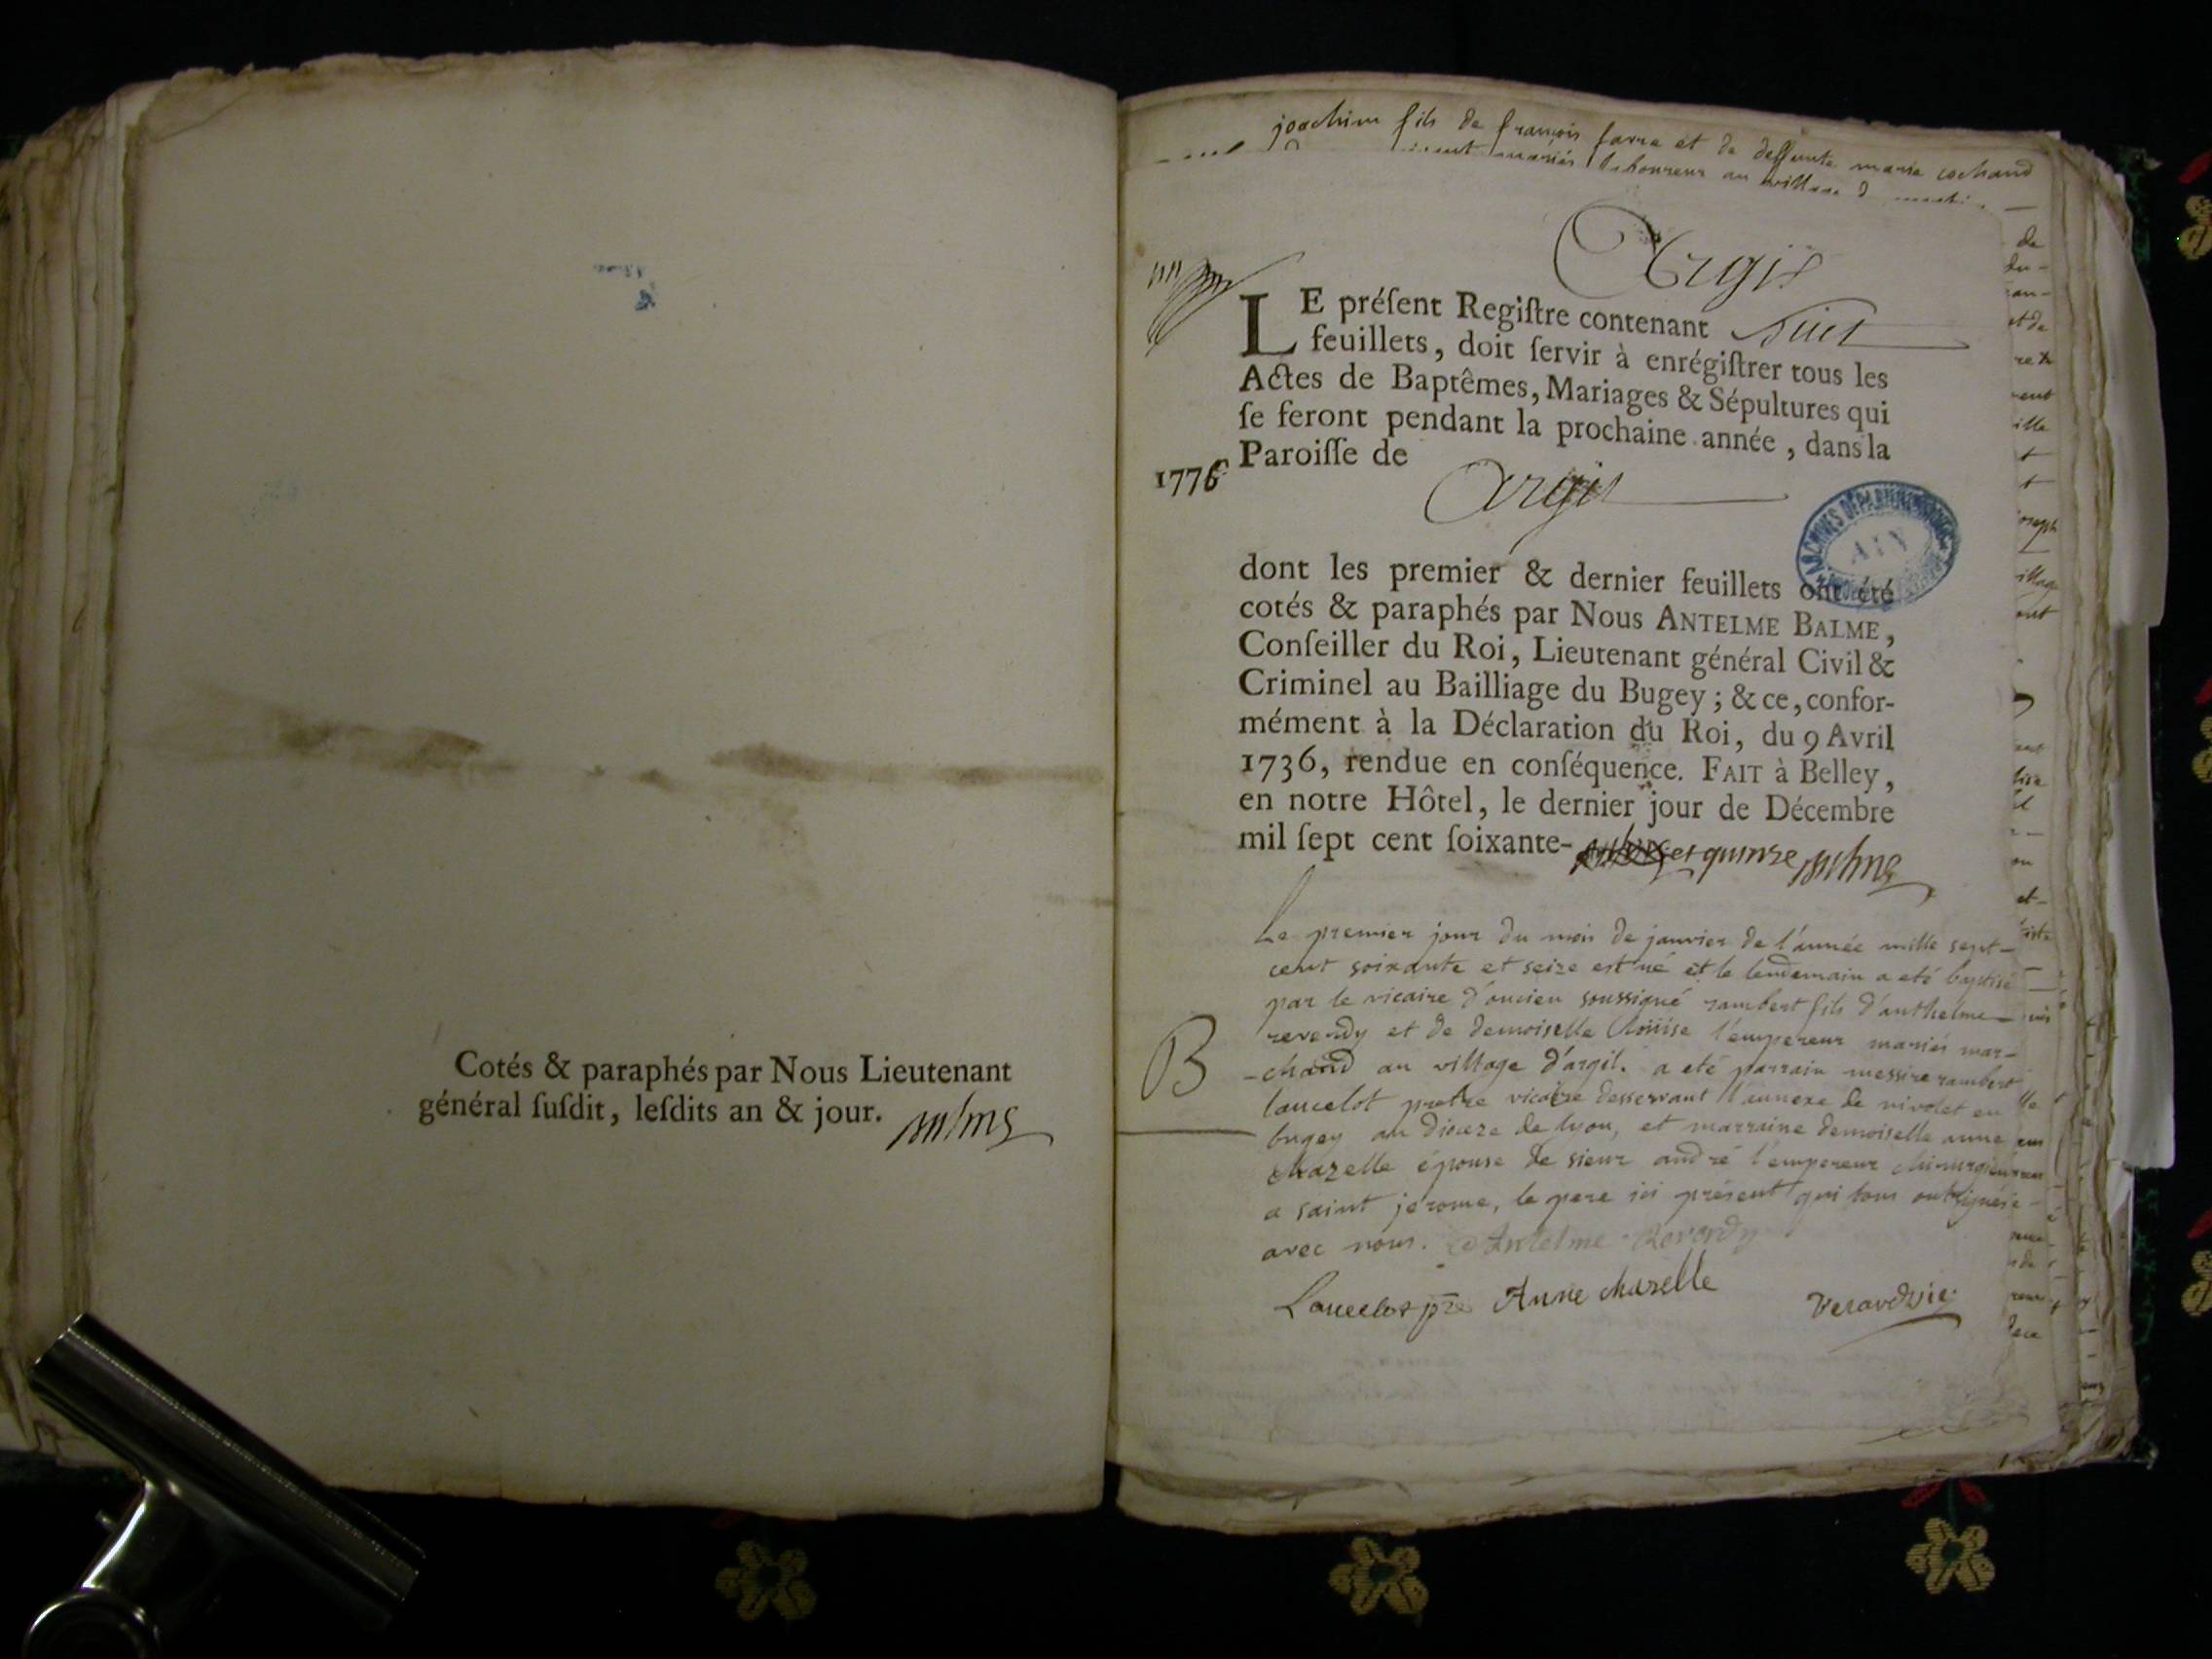 Cotés & paraphés par Nous Lieutenant
général ſuſdit, leſdits an & jour.
joachim fils de francois farre et de deffunte marie cochand
mariés laboureur au village
Argis
LE préſent Regiſtre contenant huit
feuillets, doit ſervir à enrégiſtrer tous les
Actes de Baptêmes, Mariages & Sépultures qui
ſe feront pendant la prochaine année, dans la
1776 Paroiſſe de
Argis
ARCHIVES DÉPARTEMENTALES
AIN
dont les premier & dernier feuillets ont été
cotés & paraphés par Nous ANTELME BALME,
Conſeiller du Roi, Lieutenant général Civil &
Criminel au Bailliage du Bugey; & ce, confor-
mément à la Déclaration du Roi, du 9 Avril
1736, rendue en conſéquence. FAIT à Belley,
en notre Hôtel, le dernier jour de Décembre
mil ſept cent ſoixante- et quinze Balme
Le premier jour du mois de janvier de l'année mille sept-
cent soixante et seize est né et le lendemain a eté baptisé
par le vicaire d'oncieu soussigné rambert fils d'anthelme
reverdy et de demoiselle Loüise l'empereur mariés mar-
B
-chand au village d'argit. a eté parrain messire rambert
lancelot pretre vicaire desservant l'annexe de nivolet en
bugey au dioceze de lyon, et marraine demoiselle anne
chazelle épouse de sieur andré l'empereur chirurgien
a saint jerome, le pere ici présent qui tous ont signés
avec nous. Antelme Reverdy
Lancelot ptre Anne chazelle